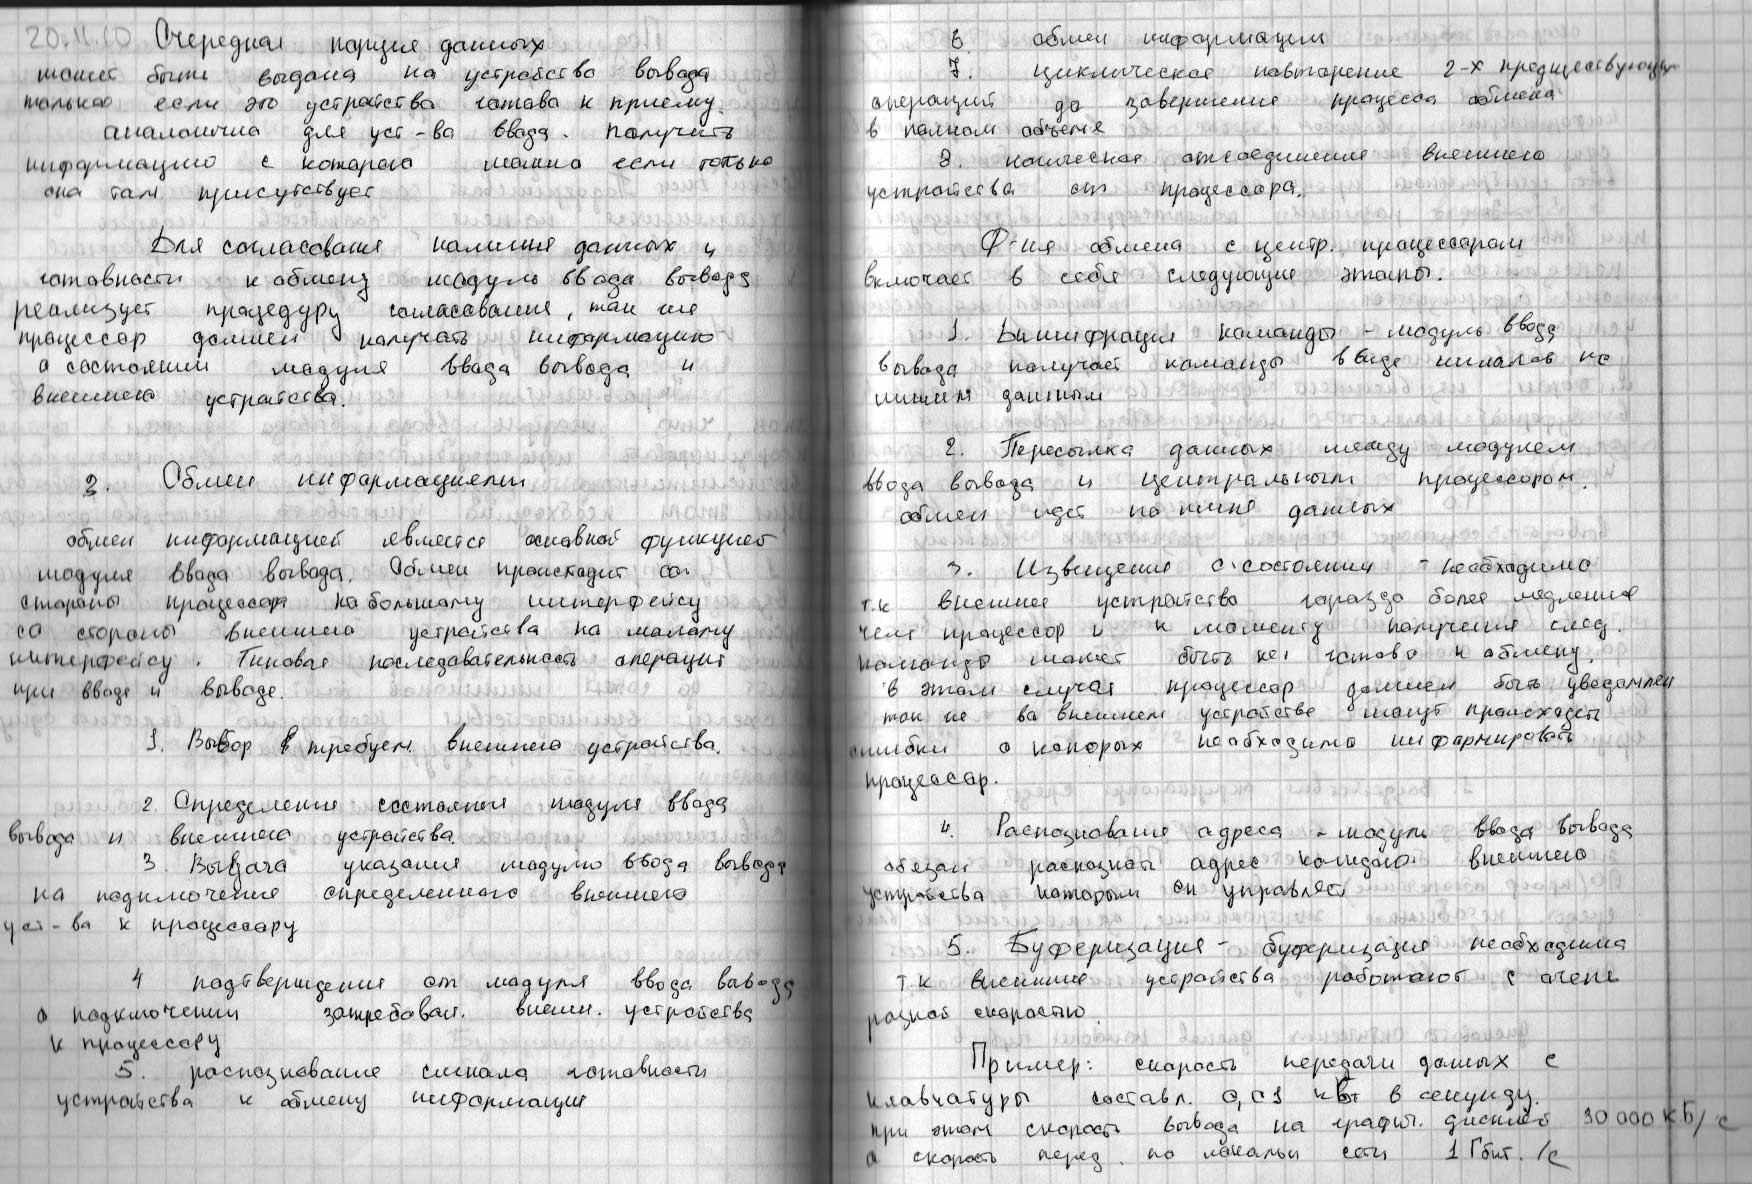 20.11.10 Очередная порция данных
может быть выдана на устройство вывода
только если это устройства готова к приему.
аналогична для уст-ва ввода. получить
информацию с которого можно если только
она там присутствует
Для согласования наличия данных и
готовности к обмену модуль ввода вывода
реализует процедуру согласования, так же
процессор должен получать информацию
о состоянии модуля ввода вывода и
внешнего устройства.
3. Обмен информацией
обмен информацией является основной функцией
модуля ввода вывода. Обмен происходит со
стороны процессора по большому интерфейсу
со стороны внешнего устройства по малому
интерфейсу. Типовая последовательность операций
при вводе и выводе.
1. Выбор требуем. внешнего устройства.
2. Определение состояния модуля ввода
вывода и внешнего устройства.
3. Выдача указания модулю ввода вывода
на подключение определенного внешнего
уст-ва к процессору
4 подтверждения от модуля ввода вывода
о подключении затребован. внешн. устройства
к процессору
5. распознование сигнала готовности
устройства к обмену информации
6. обмен информации
7. циклическое повторение 2-х предшествующих
операций до завершения процесса обмена
в полном объеме
8. логическое отсоединение внешнего
устройства от процессора.
Ф-ия обмена с центр. процессором
включает в себя следующие этапы.
1. Дешифрация команды - модуль ввода
вывода получает команды в виде сигналов по
шинам данным
2. Пересылка данных между модулем
ввода вывода и центральным процессором.
обмен идет по шине данных
3. Извещение о состоянии - необходимо
т.к внешнее устройство гораздо более медленное
чем процессор и к моменту получения след.
команды может быть не готово к обмену.
в этом случае процессор должен быть уведомлен
так же во внешнем устройстве могут происходить
ошибки о которых необходимо информировать
процессор.
4. Распознование адреса - модуль ввода вывода
обязан распознать адрес каждого внешнего
устройства которым он управляет
5. Буферизация - буферизация необходима
т.к внешние устройства работают с очень
разной скоростью.
Пример: скорость передачи данных с
клавиатуры составл. 0,01 кБт в секунду.
при этом скорость вывода на графич. дисплей 30 000 кБ/с
а скорость перед. по локальн сети 1 Гбит./с